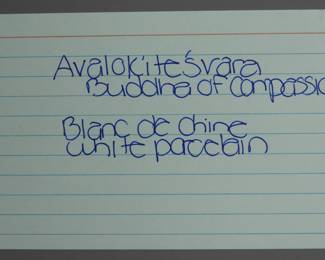 Avalokiteśvara
Buddha of compassio
Blanc de chine
white parcelain